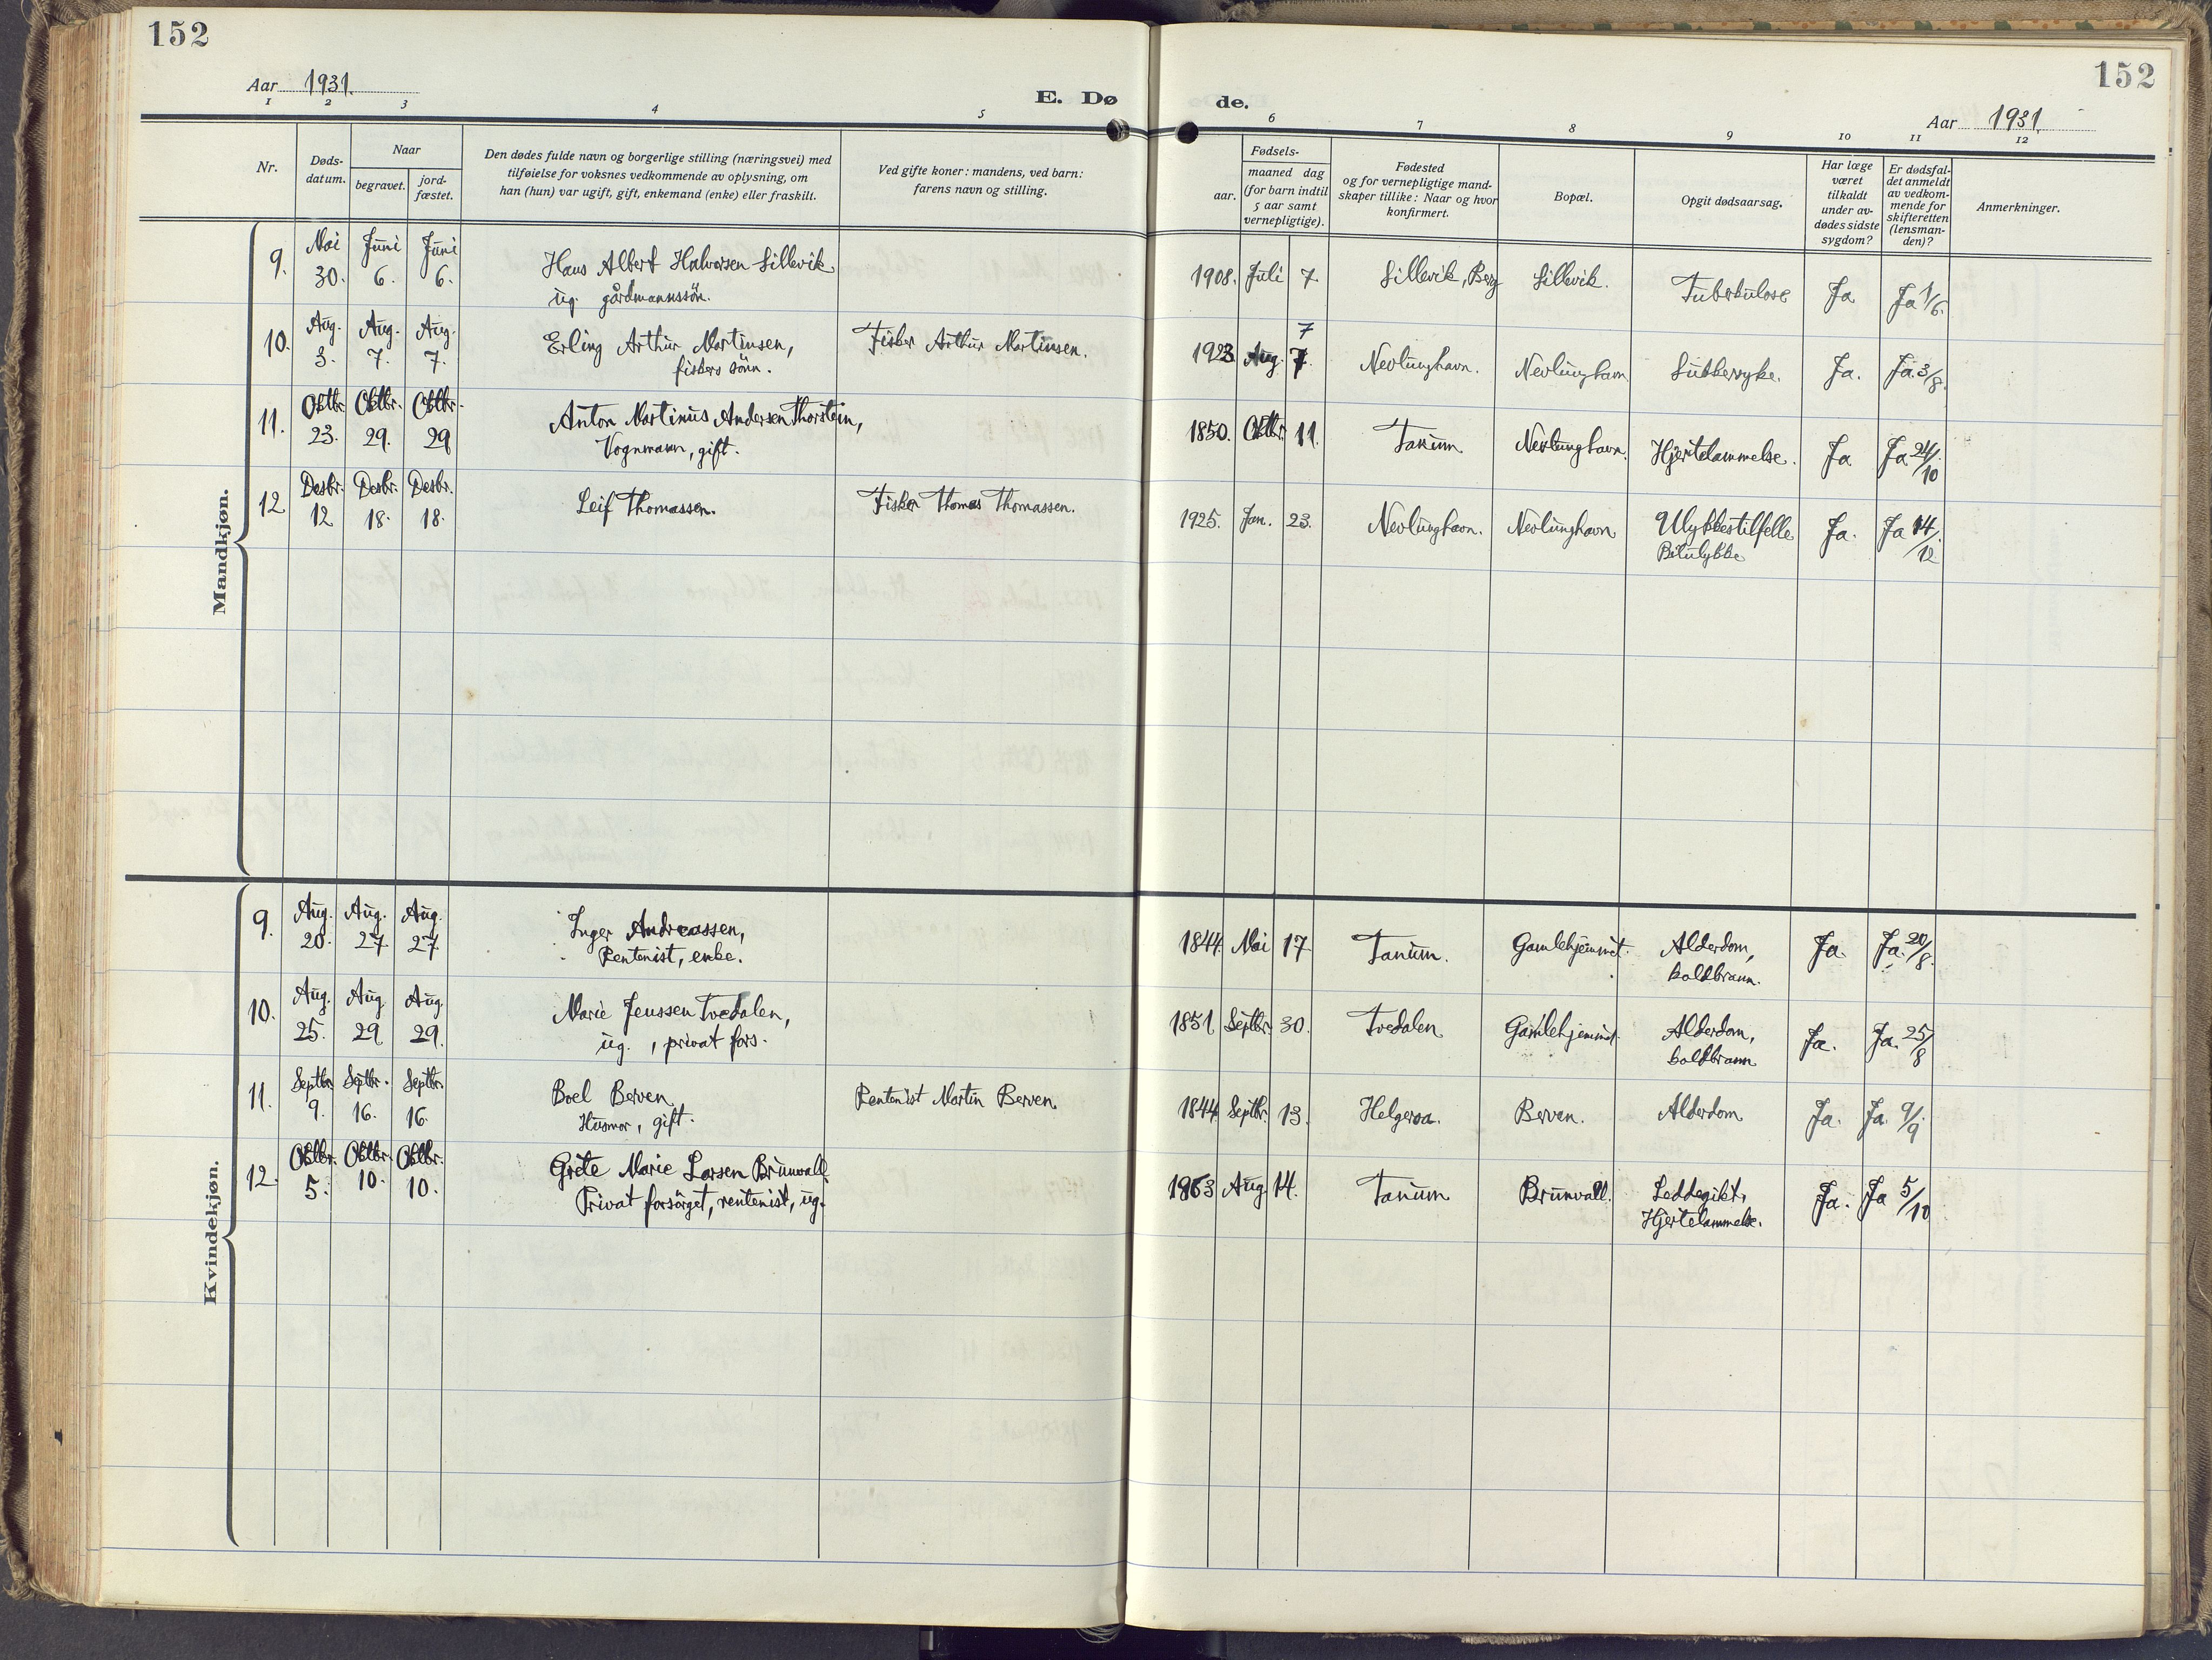 152
152
Aar 1931.
E. Dø
de.
Aar 1931.
1 2 3 4 5 6 7 8 9 10 11 12
Nr.
Døds-
datum.
Naar
begravet.
jord-
fæstet.
Den dødes fulde navn og borgerlige stilling (næringsvei) med
tilføielse for voksnes vedkommende av oplysning, om
han (hun) var ugift, gift, enkemand (enke) eller fraskilt.
Ved gifte koner: mandens, ved barn:
farens navn og stilling.
Fødsels-
aar.
maaned dag
(for barn indtil
5 aar samt
vernepligtige).
Fødested
og for vernepligtige mand-
skaper tillike: Naar og hvor
konfirmert.
Bopæl.
Opgit dødsaarsag.
Har læge
været
tilkaldt
under av-
dødes sidste
sygdom?
Er dødsfal-
det anmeldt
av vedkom-
mende for
skifteretten
(lensman-
den)?
Anmerkninger.
Mandkjøn.
9. Mai 30. Juni 6. Juni 6. Hans Albert Halvorsen Sillevik 1908. Juli 7. Sillevik, Berg Sillevik. Tuberkulose Ja Ja 1/6.
ug. gårdmannssön.
10. Aug. 3. Aug. 7. Aug. 7. Erling Arthur Martinsen, Fisker Arthur Martinsen. 1923 Aug. 7. 7 Nevlunghavn. Nevlunghavn Sukkersyke. Ja. Ja. 3/8.
fiskers sönn.
11. Oktbr. 23. Oktbr. 29. Oktbr. 29 Anton Martinus Andersen Thorstein, 1850. Oktbr. 11. Tanum Nevlunghavn. Hjertelammelse. Ja Ja 24/10
Vognmann, gift.
12 Desbr. 12 Desbr. 18. Desbr. 18. Leif Thomassen. Fisker Thomas Thomassen. 1925. Jan. 23. Nevlunghavn. Nevlunghavn Ulykkestilfelle Ja. Ja 14/12
Bilulykke
Kvindekjøn.
9. Aug. 20. Aug. 27. Aug. 27 Inger Andreassen, 1844 Mai 17 Tanum. Gamlehjemmet. Alderdom, Ja. Ja. 20/8.
Rentenist, enke. koldbrann.
10. Aug. 25. Aug 29 Aug 29. Marie Jenssen Tvedalen, 1851 Septbr. 30. Tvedalen Gamlehjemmet. Alderdom, Ja. Ja. 25/8
ug., privat fors. koldbrann
11. Septbr. 9. Septbr. 16. Septbr. 16. Boel Berven Rentenist Martin Berven. 1844 Septbr. 13. Helgeroa. Berven. Alderdom Ja. Ja. 9/9
Husmor, gift.
12. Oktbr. 5. Oktbr. 10. Oktbr. 10. Grete Marie Larsen Brunvall. Aug. 14. Tanum Brunvall. Leddegikt, Ja. Ja 5/10
Privat forsörget, rentenist, ug. Hjertelammelse.